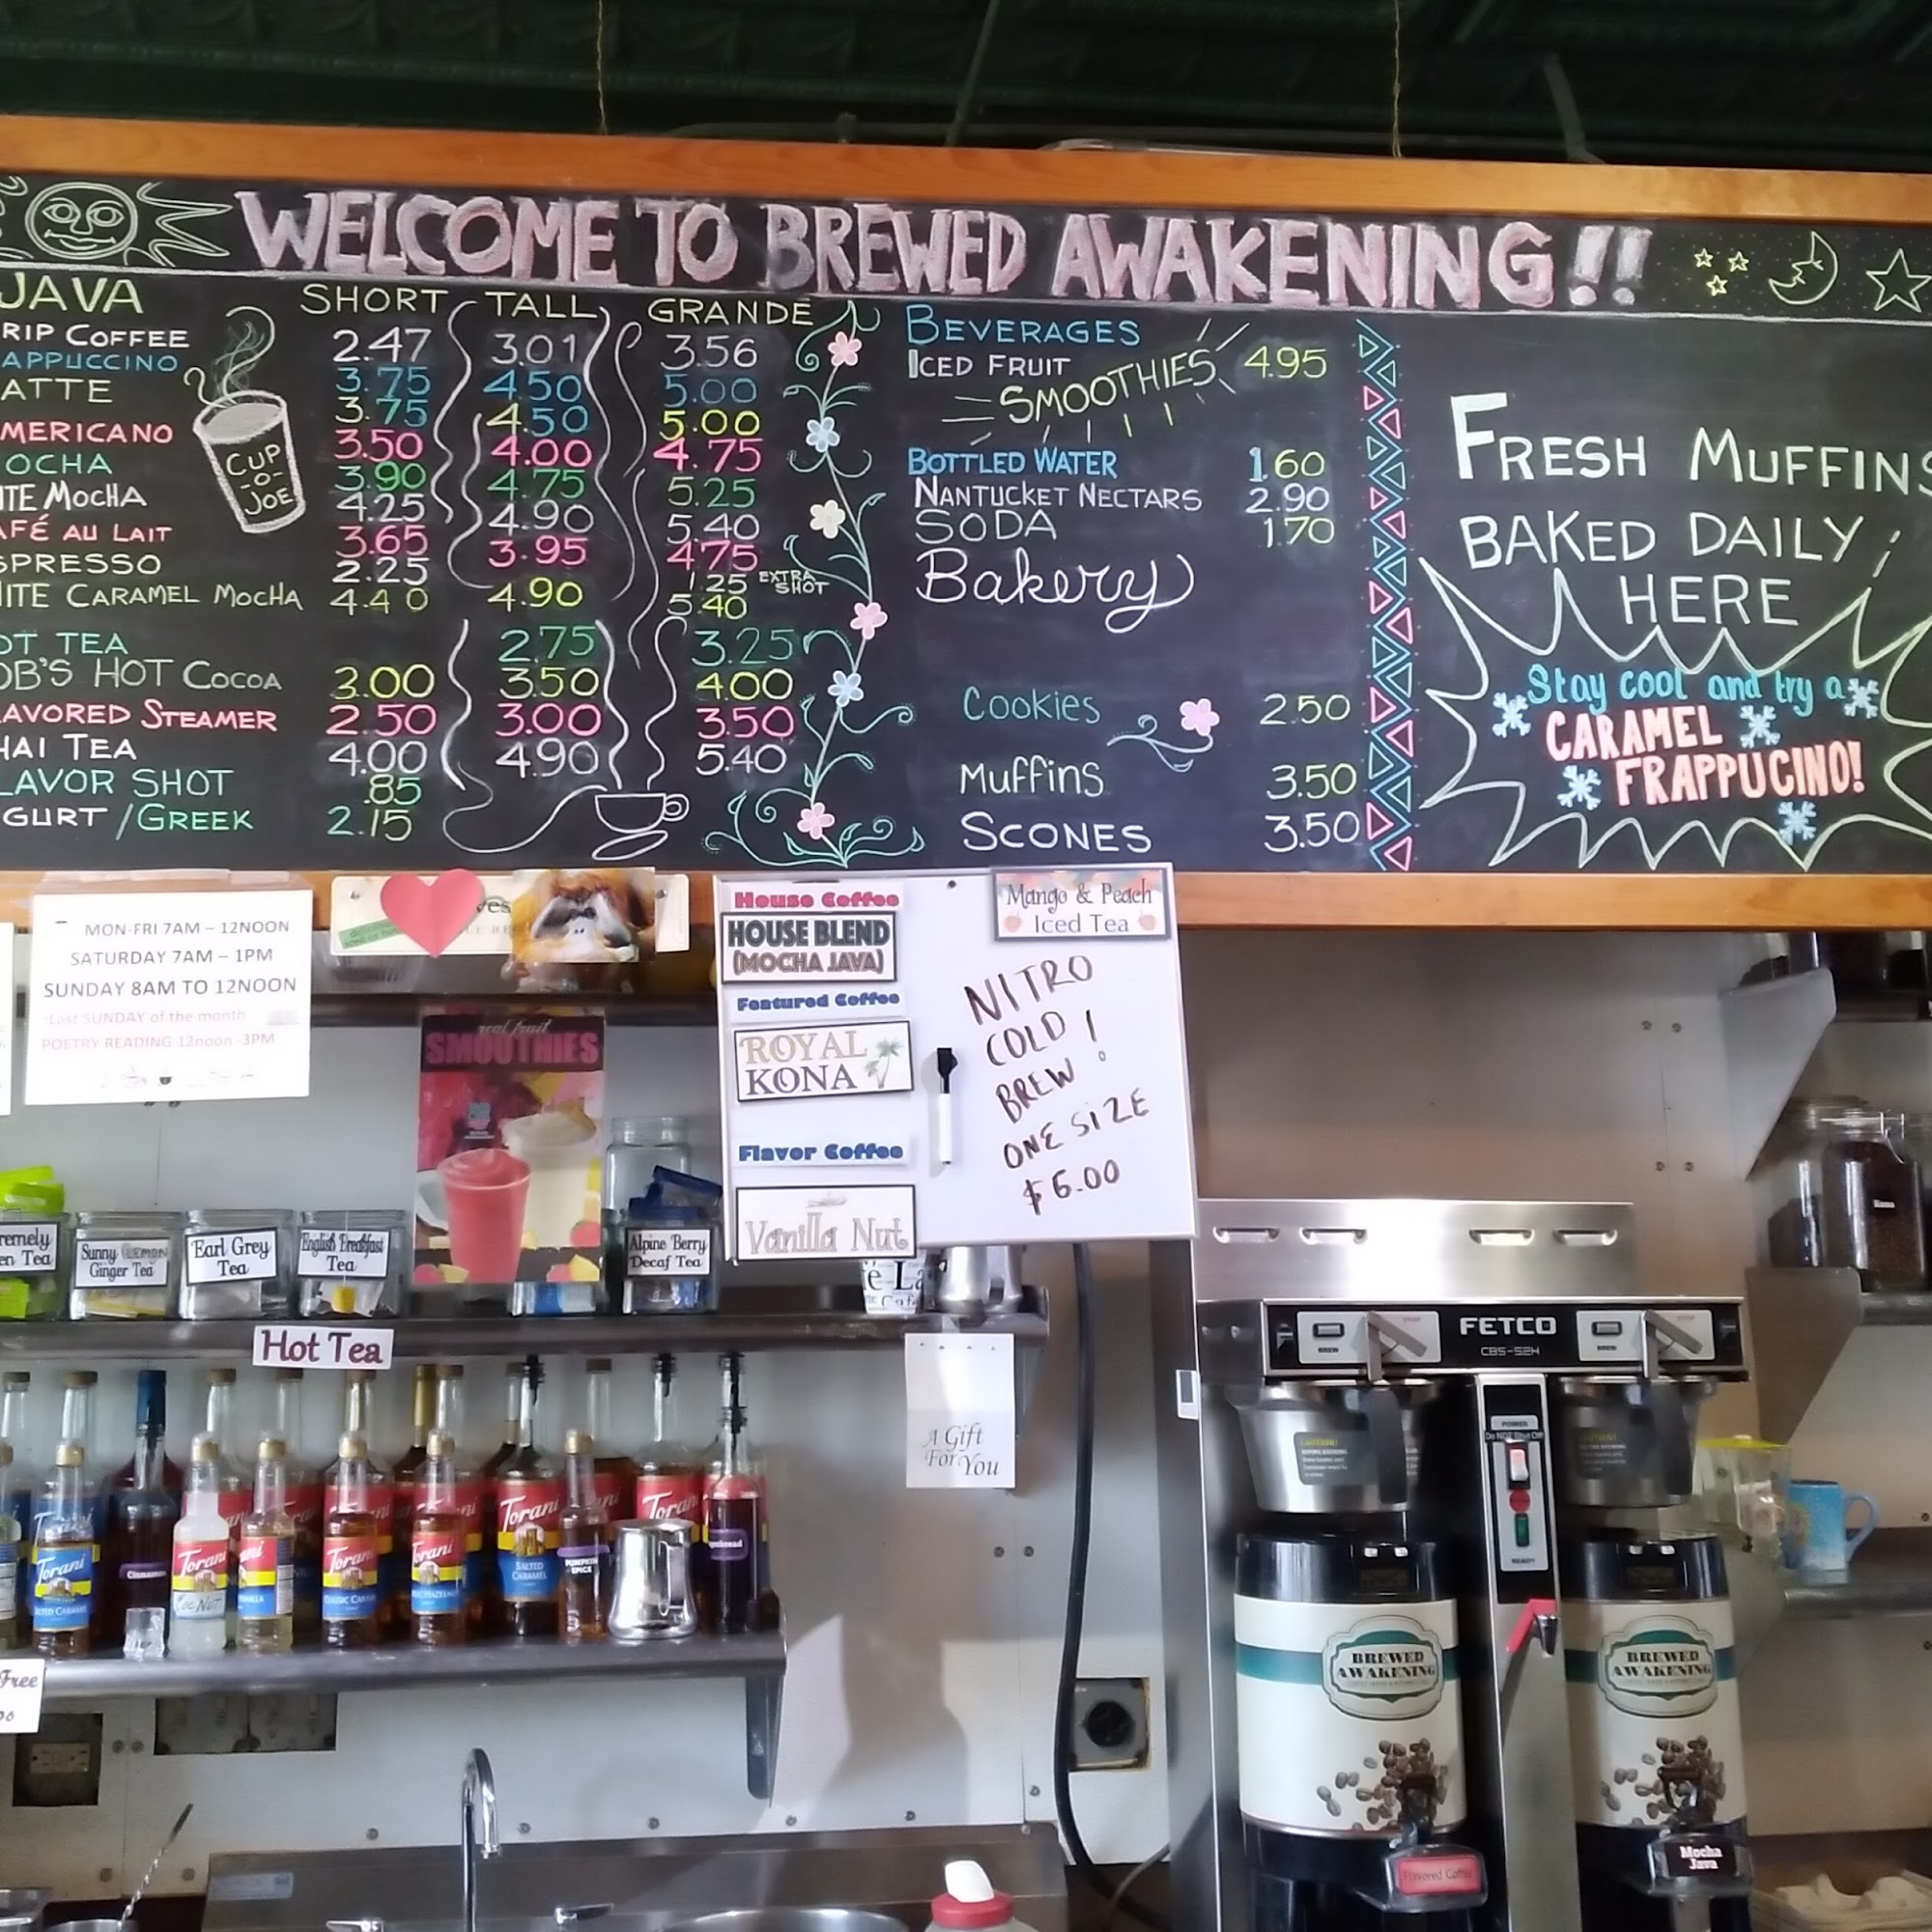 WELCOME TO BREWED AWAKENING!!
JAVA SHORT TALL GRANDE
RIP COFFEE 2.47 3.01 3.56
APPUCCINO 3.75 4.50 5.00
ATTE 3.75 4.50 5.00
MERICANO 3.50 4.00 4.75
OCHA 3.90 4.75 5.25
ITE MOCHA 4.25 4.90 5.40
AFÉ AU LAIT 3.65 3.95 4.75
SPRESSO 2.25 1.25 EXTRA SHOT
ITE CARAMEL MOCHA 4.40 4.90 5.40
OT TEA 2.75 3.25
OB'S HOT COCOA 3.00 3.50 4.00
AVORED STEAMER 2.50 3.00 3.50
HAI TEA 4.00 4.90 5.40
LAVOR SHOT .85
GURT / GREEK 2.15
CUP
-O-
JOE
BEVERAGES
ICED FRUIT 4.95
SMOOTHIES
BOTTLED WATER 1.60
NANTUCKET NECTARS 2.90
SODA 1.70
Bakery
Cookies 2.50
Muffins 3.50
SCONES 3.50
FRESH MUFFINS
BAKED DAILY
HERE
Stay cool and try a
CARAMEL
FRAPPUCINO!
MON-FRI 7AM – 12NOON
SATURDAY 7AM – 1PM
SUNDAY 8AM TO 12NOON
*Last SUNDAY of the month
POETRY READING 12noon -3PM
real fruit
SMOOTHIES
House Coffee
HOUSE BLEND
(MOCHA JAVA)
Featured Coffee
ROYAL
KONA
Flavor Coffee
Vanilla Nut
Mango & Peach
Iced Tea
NITRO
COLD !
BREW
ONE SIZE
$6.00
remely
en Tea
Sunny LEMON
Ginger Tea
Earl Grey
Tea
English Breakfast
Tea
Alpine Berry
Decaf Tea
Hot Tea
A Gift
For You
Torani
SALTED CARAMEL
Cinnamon
Torani
COCNUT
Torani
CLASSIC CARAMEL
Torani
Torani
SALTED
CARAMEL
PUMPKIN
SPICE
Torani
Free
FETCO
CBS-52H
BREW
BREW
STOP
CAUTION!
POWER
Do NOT Shut Off!
READY
BREWED
AWAKENING
BREWED
AWAKENING
Flavored Coffee
Mocha
Java
Kona